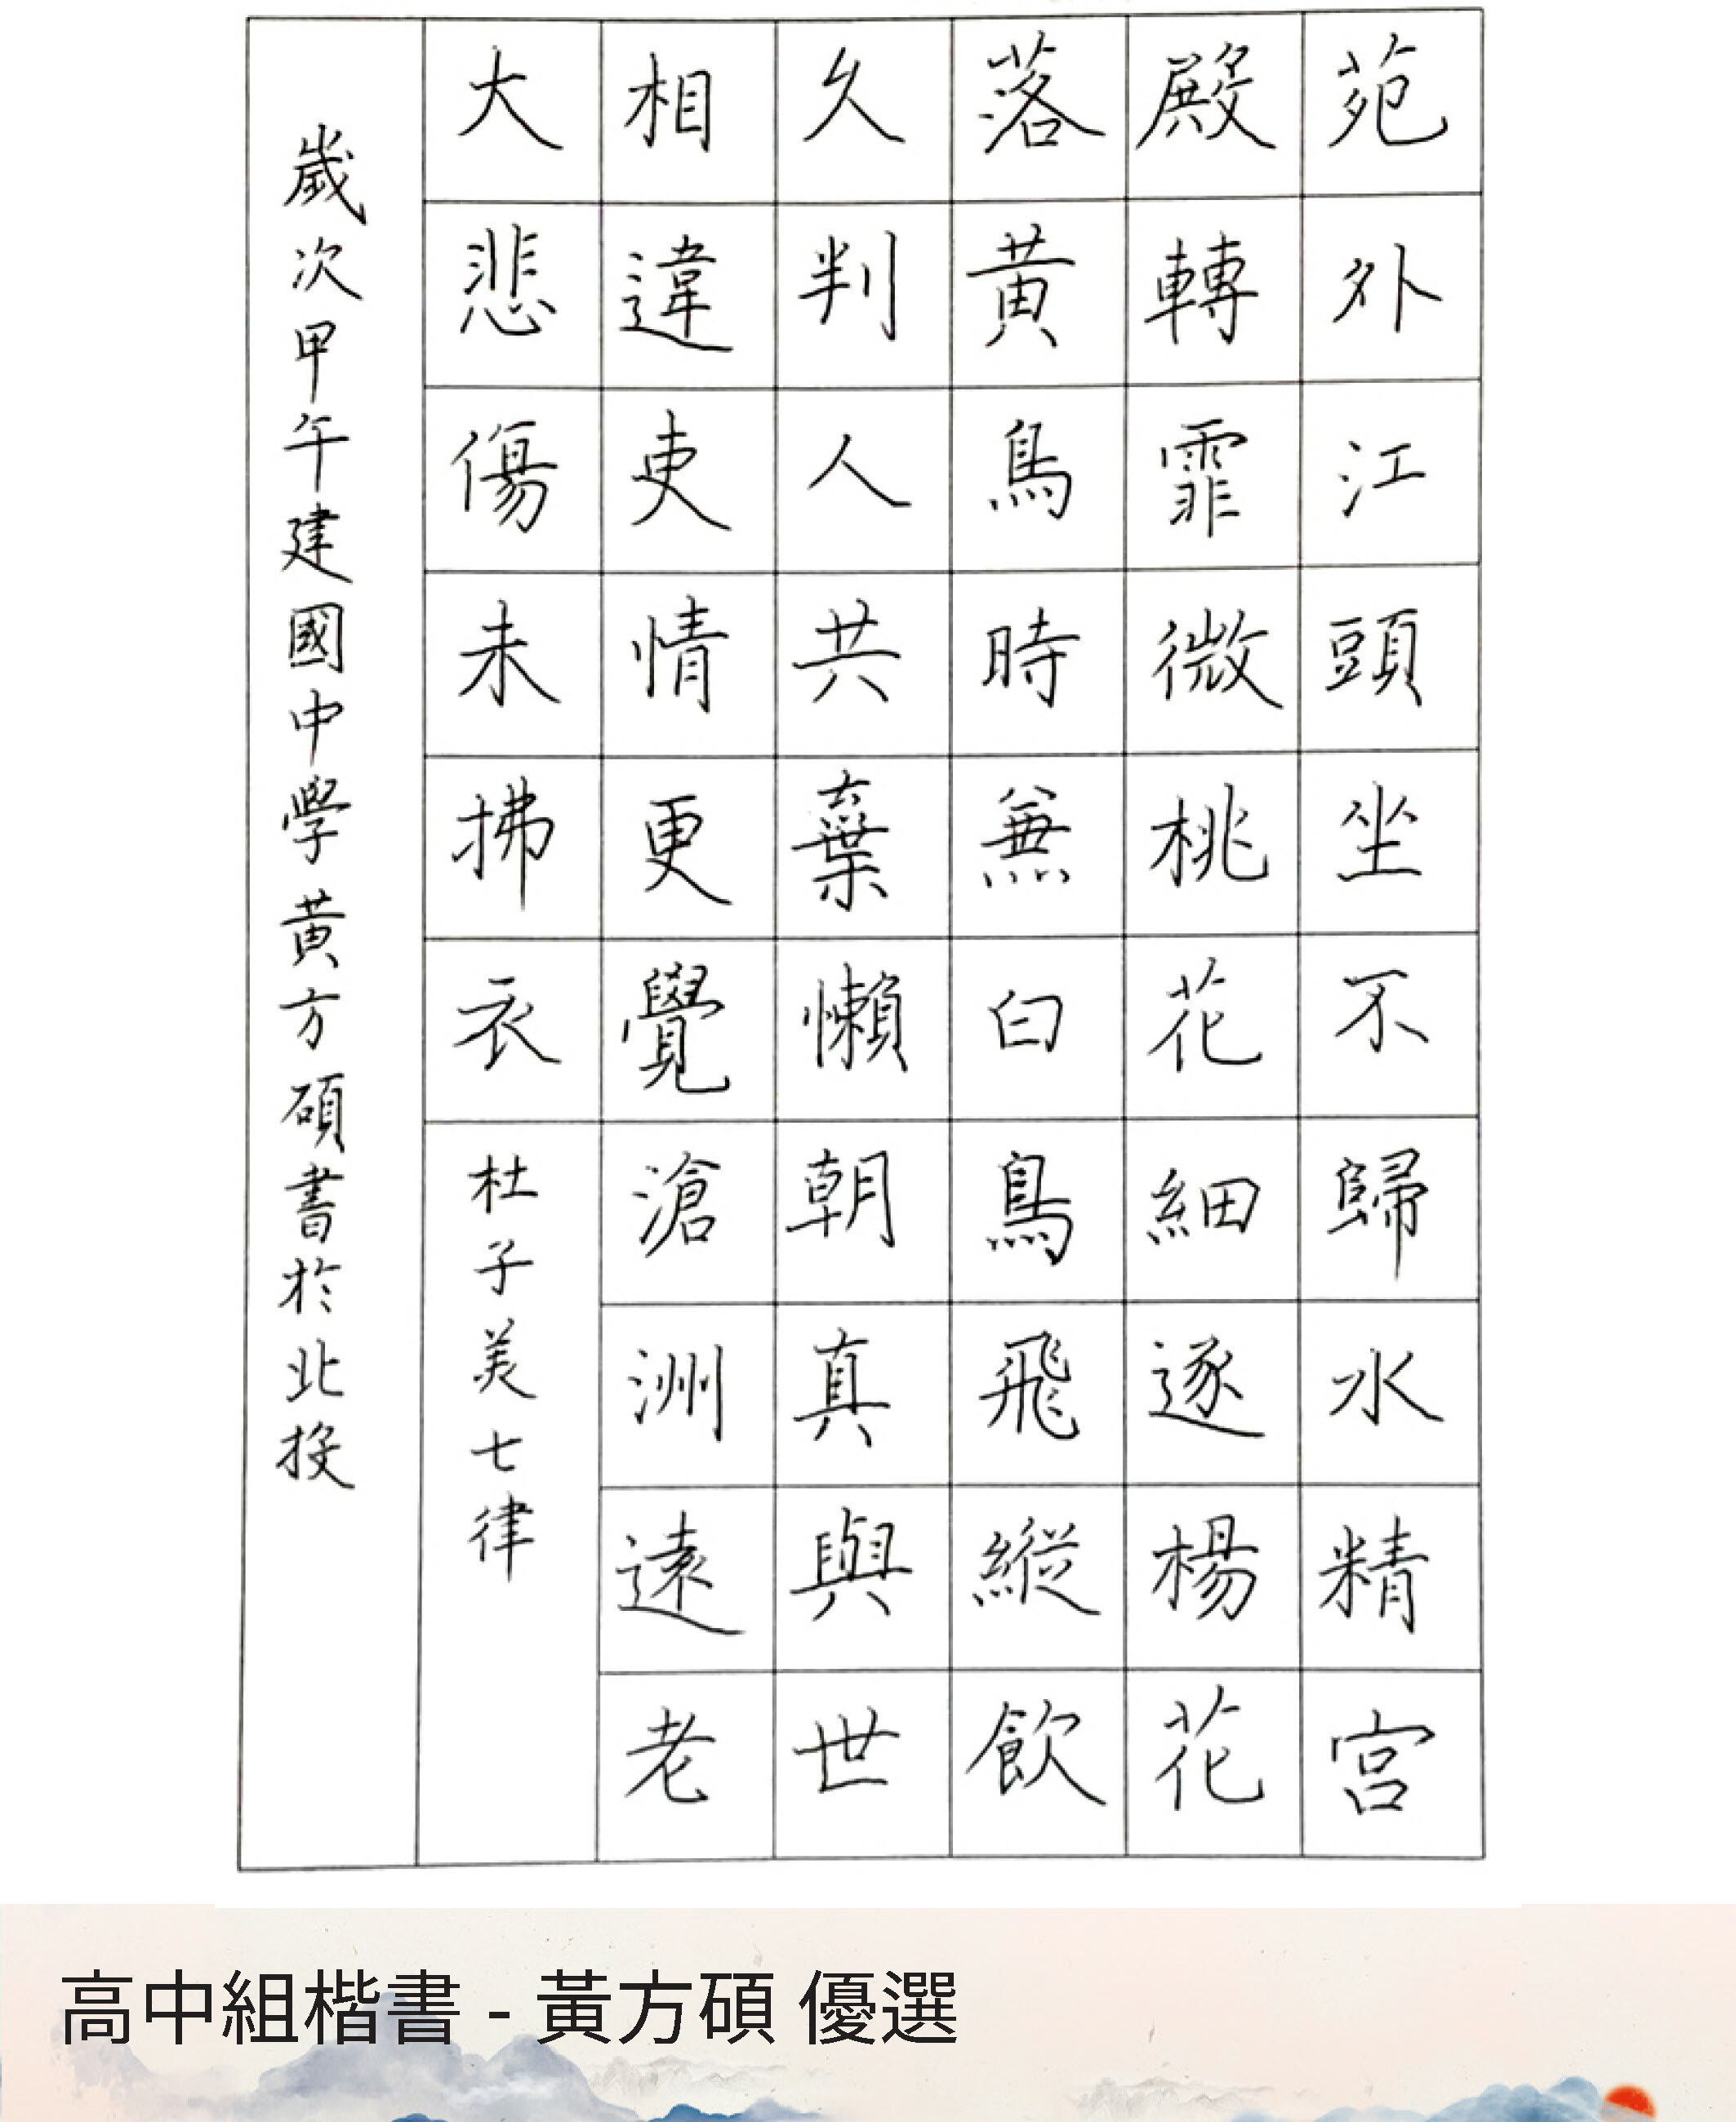 苑外江頭坐不歸水精宮
殿轉霏微桃花細逐楊花
落黃鳥時兼白鳥飛縱飲
久判人共棄懶朝真與世
相違吏情更覺滄洲遠老
大悲傷未拂衣 杜子美七律
歲次甲午建國中學黃方碩書於北投
高中組楷書 - 黃方碩 優選